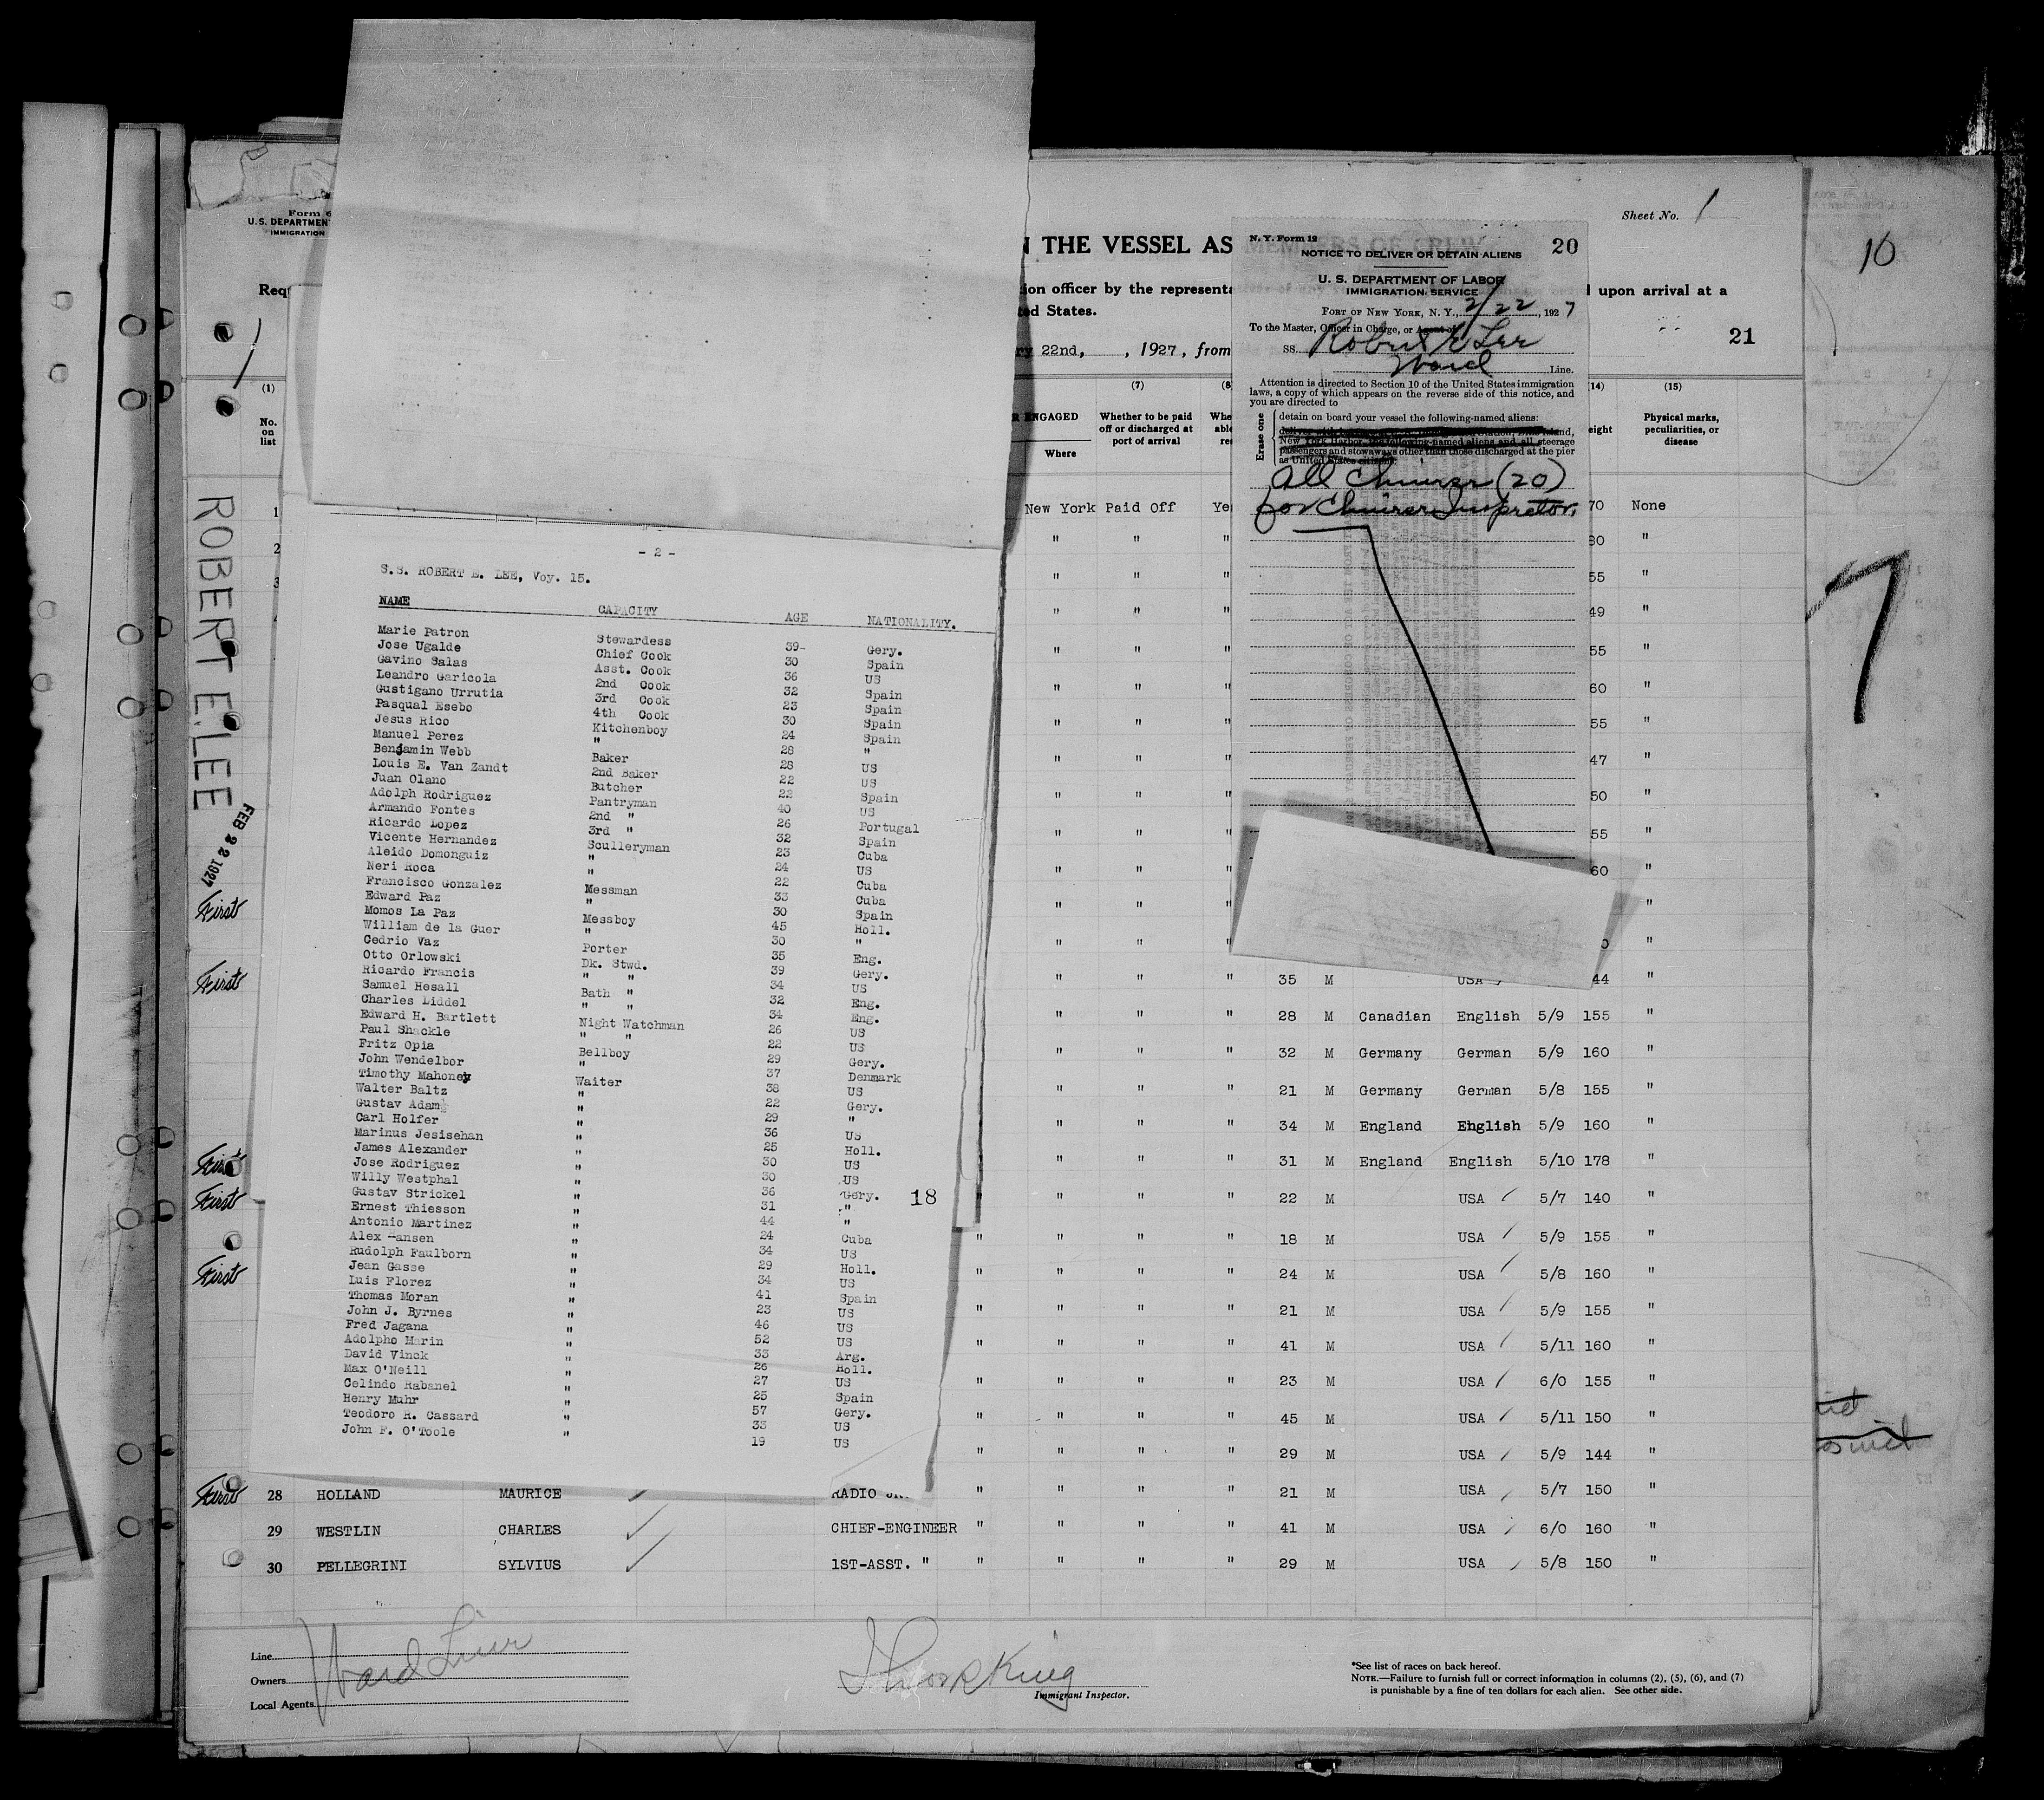 Form 6
U.S. DEPARTMENT
IMMIGRATION
Sheet No. 1
10
N THE VESSEL AS MEMBERS OF CREW
ion officer by the representa
d upon arrival at a
ed States.
ry 22nd, , 1927, from
21
(1)
No.
on
list
ENGAGED
Where
(7)
Whether to be paid
off or discharged at
port of arrival
(14)
eight
(15)
Physical marks,
peculiarities, or
disease
N. Y. Form 19
20
NOTICE TO DELIVER OR DETAIN ALIENS
U. S. DEPARTMENT OF LABOR
IMMIGRATION SERVICE
PORT OF NEW YORK, N. Y., 2/22, 1927
To the Master, Officer in Charge, or Agent of
SS. Robert E Lee
Ward Line.
Attention is directed to Section 10 of the United States immigration
laws, a copy of which appears on the reverse side of this notice, and
you are directed to
Erase one
detain on board your vessel the following-named aliens:
New York Harbor, the following-named aliens and all steerage
passengers and stowaways other than those discharged at the pier
as United States citizens:
All Chinese (20)
for Chinese Inspector.
ROBERT E. LEE
FEB 22 1927
7
- 2 -
S.S. ROBERT E. LEE, Voy. 15.
NAME CAPACITY AGE NATIONALITY.
Marie Patron Stewardess 39- Gery.
Jose Ugalde Chief Cook 30 Spain
Gavino Salas Asst. Cook 36 US
Leandro Garicola 2nd Cook 32 Spain
Gustigano Urrutia 3rd Cook 23 Spain
Pasqual Esebo 4th Cook 30 Spain
Jesus Rico Kitchenboy 24 Spain
Manuel Perez " 28 "
Benjamin Webb Baker 28 US
Louis E. Van Zandt 2nd Baker 22 US
Juan Olano Butcher 22 Spain
Adolph Rodriguez Pantryman 40 US
Armando Fontes 2nd " 26 Portugal
Ricardo Lopez 3rd " 32 Spain
Vicente Hernandez Sculleryman 23 Cuba
Aleido Domonguiz " 24 US
Neri Roca " 22 Cuba
Francisco Gonzalez Messman 33 Cuba
Edward Paz " 30 Spain
Momos La Paz Messboy 45 Holl.
William de la Guer " 30 "
Cedric Vaz Porter 35 Eng.
Otto Orlowski Dk. Stwd. 39 Gery.
Ricardo Francis " " 34 US
Samuel Hesall Bath " 32 Eng.
Charles Liddel " " 34 Eng.
Edward H. Bartlett Night Watchman 26 US
Paul Shackle " " 22 US
Fritz Opia Bellboy 29 Gery.
John Wendelbor " 37 Denmark
Timothy Mahoney Waiter 38 US
Walter Baltz " 22 Gery.
Gustav Adam " 29 "
Carl Holfer " 36 US
Marinus Jesisehan " 25 Holl.
James Alexander " 30 US
Jose Rodriguez " 30 US
Willy Westphal " 36 Gery. 18
Gustav Strickel " 31 "
Ernest Thiesson " 44 "
Antonio Martinez " 24 Cuba
Alex Hansen " 34 US
Rudolph Faulborn " 29 Holl.
Jean Gasse " 34 US
Luis Florez " 41 Spain
Thomas Moran " 23 US
John J. Byrnes " 46 US
Fred Jagana " 52 US
Adolpho Marin " 33 Arg.
David Vinck " 26 Holl.
Max O'Neill " 27 US
Celindo Rabanel " 25 Spain
Henry Muhr " 57 Gery.
Teodoro R. Cassard " 33 US
John F. O'Toole " 19 US
1 New York Paid Off Ye 70 None
2 " " " 80 "
3 " " " 55 "
" " " 49 "
" " " 55 "
" " " 60 "
" " " 55 "
" " " 47 "
" " " 50 "
" " " 55 "
" " " 60 "
First " " " "
" " " 0 "
First " " " 35 M USA 44 "
" " " 28 M Canadian English 5/9 155 "
" " " 32 M Germany German 5/9 160 "
" " " 21 M Germany German 5/8 155 "
" " " 34 M England English 5/9 160 "
First " " " 31 M England English 5/10 178 "
First " " " " 22 M USA 5/7 140 "
" " " " 18 M USA 5/9 155 "
First " " " " 24 M USA 5/8 160 "
" " " " 21 M USA 5/9 155 "
" " " " 41 M USA 5/11 160 "
" " " " 23 M USA 6/0 155 "
" " " " 45 M USA 5/11 150 "
" " " " 29 M USA 5/9 144 "
First 28 HOLLAND MAURICE RADIO " " " " 21 M USA 5/7 150 "
29 WESTLIN CHARLES CHIEF-ENGINEER " " " " 41 M USA 6/0 160 "
30 PELLEGRINI SYLVIUS 1ST-ASST. " " " " " 29 M USA 5/8 150 "
Line
Owners
Local Agents
Ward Line
King
Immigrant Inspector.
*See list of races on back hereof.
NOTE.—Failure to furnish full or correct information in columns (2), (5), (6), and (7)
is punishable by a fine of ten dollars for each alien. See other side.